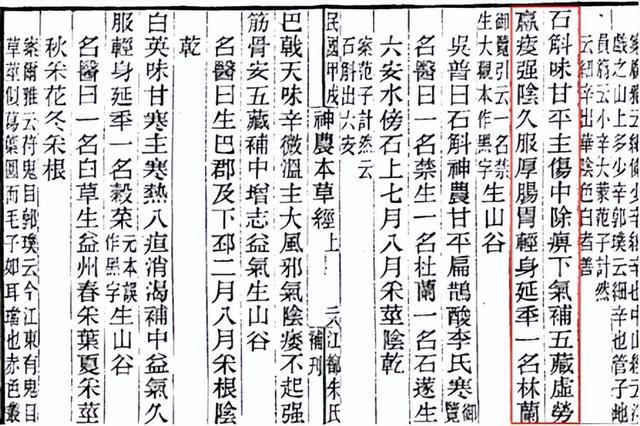 戲之山上多少辛郭璞云細辛也管子地
員篇云小辛大蒙范子計然
云細辛出華陰色白者善
石斛味甘平主傷中除痹下氣補五藏虛勞
羸瘦强陰久服厚腸胃輕身延秊一名林蘭
御覽引云一名禁
生大觀本作黑字生山谷
吳普曰石斛神農甘平扁鵲酸李氏寒御覽
名醫曰一名禁生一名杜蘭一名石蓫生
六安水傍石上七月八月采莖陰乾
案范子計然云
石斛出六安
民國甲戌 神農本草經上 江都朱氏補刊
巴戟天味辛微溫主大風邪氣陰痿不起强
筋骨安五藏補中增志益氣生山谷
名醫曰生巴郡及下邳二月八月采根陰
乾
白英味甘寒主寒熱八疸消渴補中益氣久
服輕身延秊一名穀菜元本誤作黑字生山谷
名醫曰一名白草生益州春采葉夏采莖
秋采花冬采根
案爾雅云苻鬼目郭璞云今江東有鬼目
草莖似葛葉圓而毛子如耳璫也赤色叢